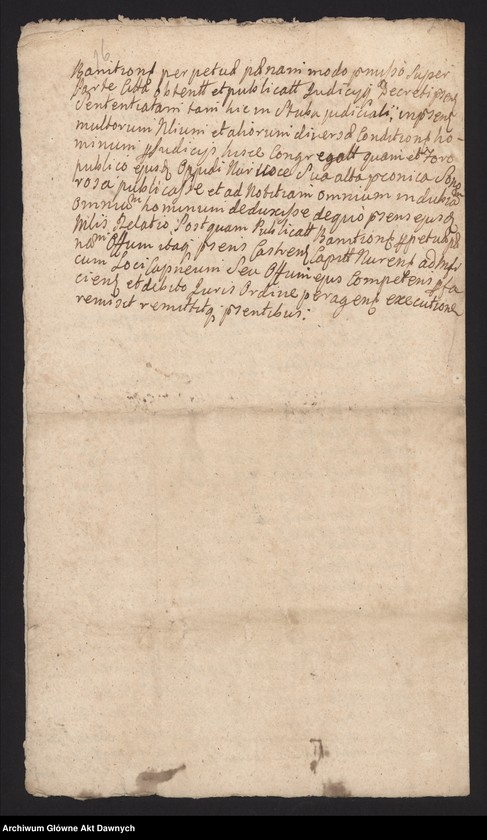 16.
Banitionis perpetuæ pœnam modo pmisso Super
Parte Citta obtentt et publicatt Judicijs Decreti
Sententiatam tam hic in Stuba judiciali, in psent
multorum Nlium et aliorum diversæ Conditionis ho-
minum Judicijs hisce Congregatt quam et Foro
publico ejusd Oppidi Nur voce Sua alta pconica Sono-
rosa publicasse et ad Notitiam omnium indubiam
omnium hominum deduxisse de quo psens ejusd
Nilis Relatio, Postquam Publicatt Banitionis ppetuæ pœ-
nam Offum itaq psens Castren Capitt Nurens ad
cum Loci Capneum Seu Offum ejus Competens
ciens et debito Juris Ordine peragens executione
remisit remittitq psentibus.
Archiwum Główne Akt Dawnych